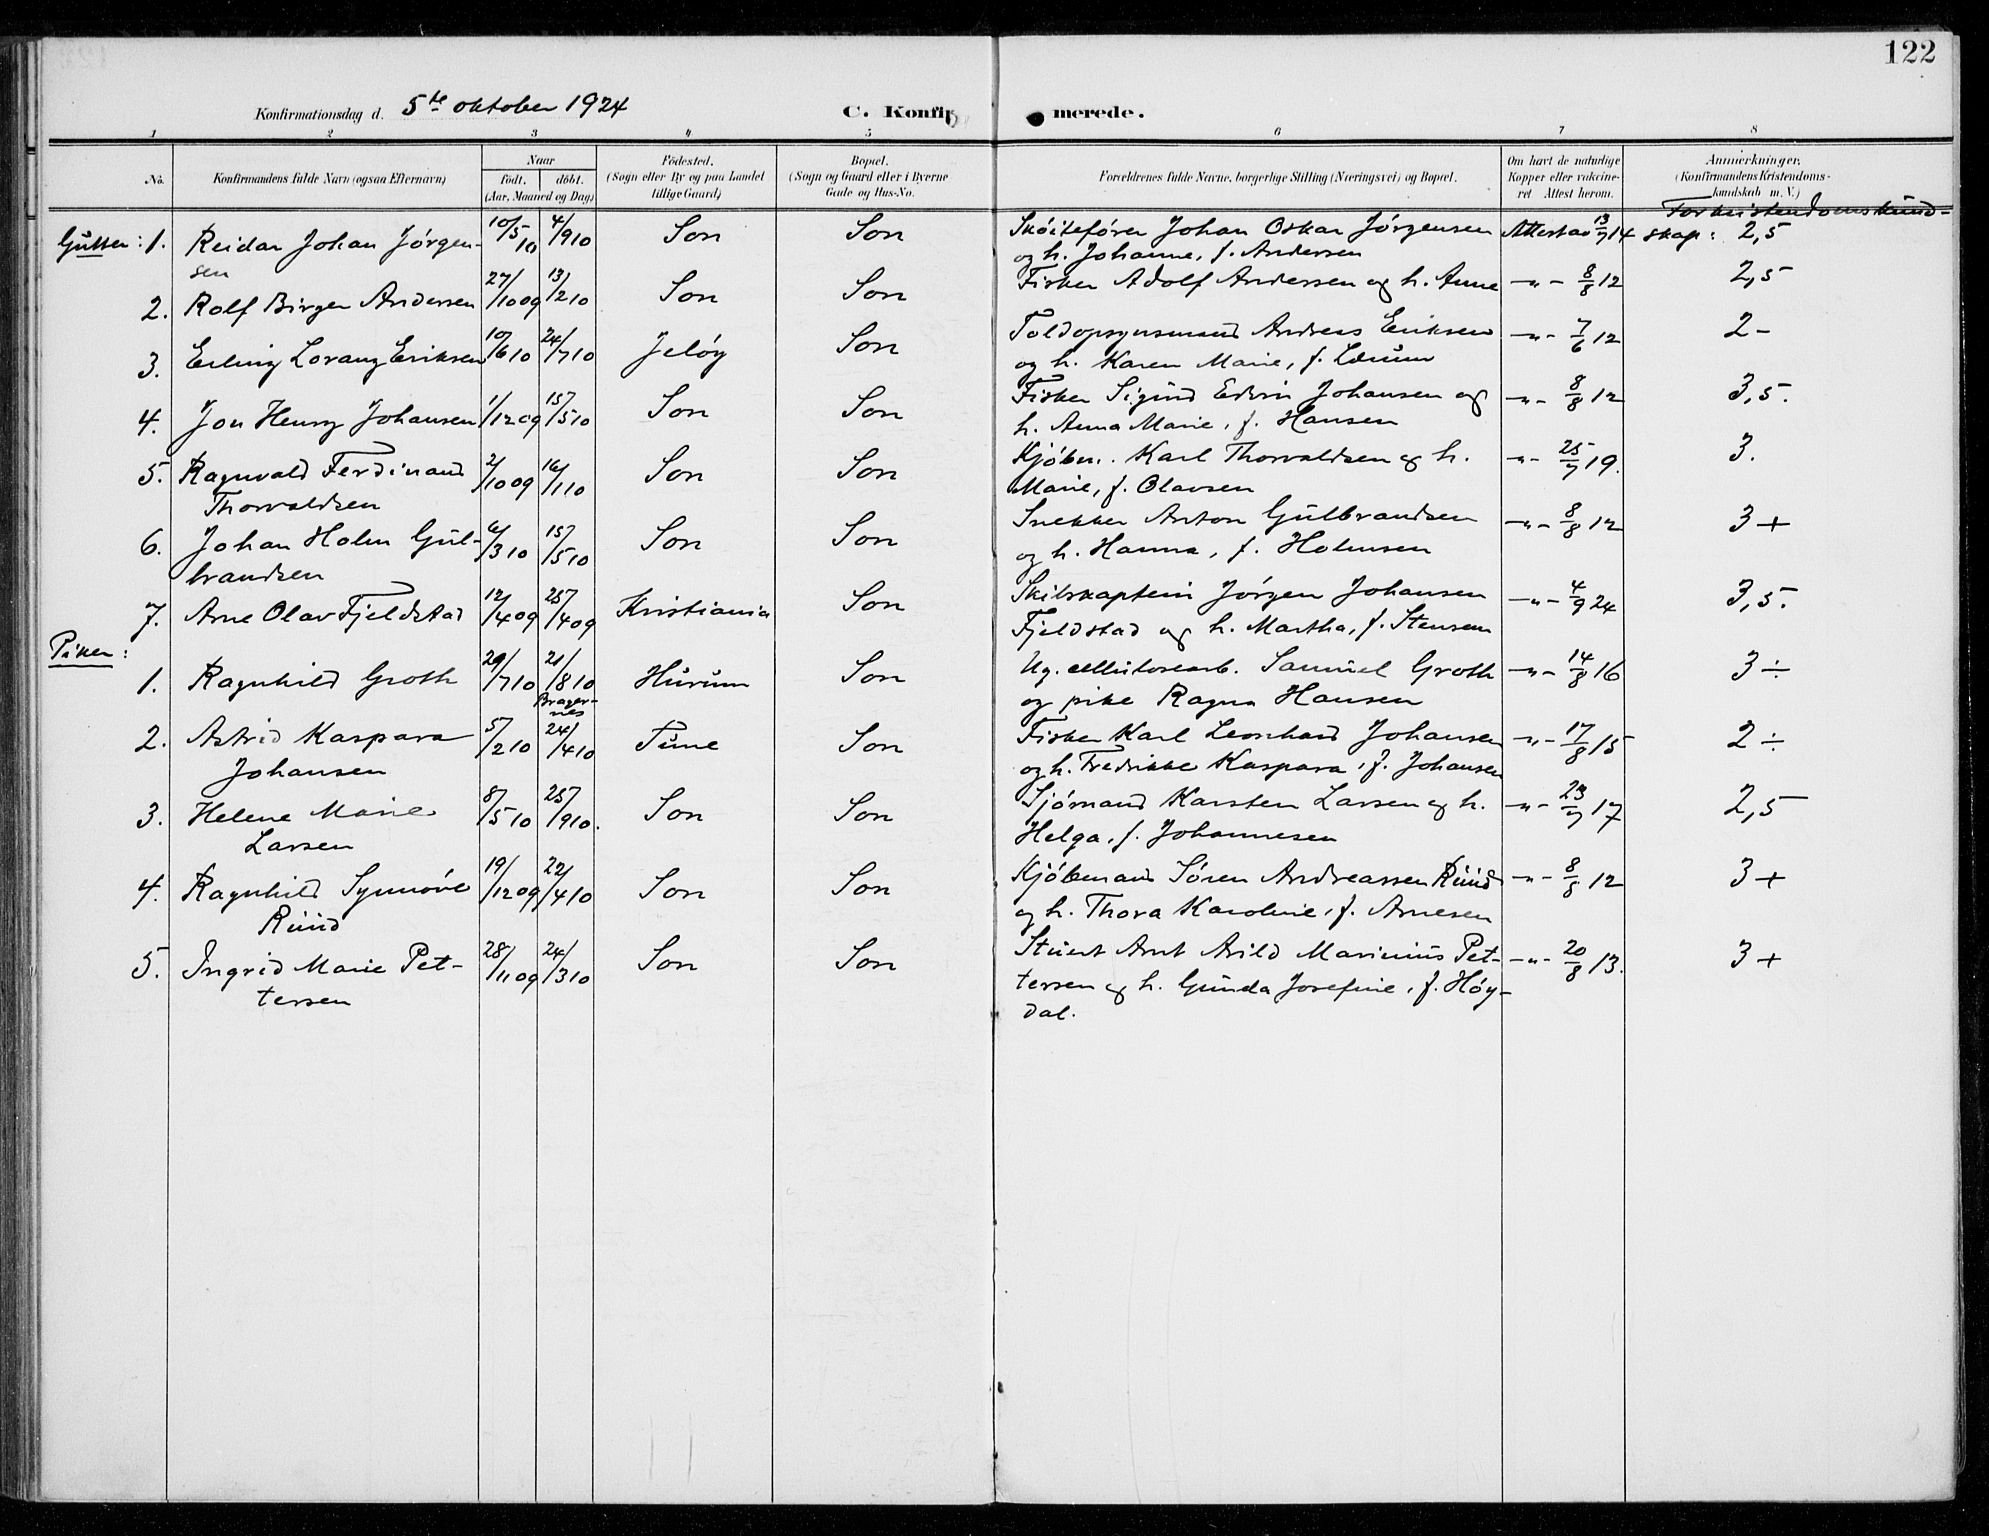 122
Konfirmationsdag d. 5te oktober 1924
C. Konfir merede.
1 2 3 4 5 6 7 8
No. Konfirmandens fulde Navn (ogsaa Efternavn) Naar født. døbt. (Aar, Maaned og Dag) Födested. (Sogn eller By og paa Landet tillige Gaard) Bopæl. (Sogn og Gaard eller i Byerne Gade og Hus-No. Forældrenes fulde Navne, borgerlige Stilling (Næringsvei) og Bopæl. Om havt de naturlige Kopper eller vaccineret Attest herom. Anmerkninger. (Konfirmandens Kristendomskundskab m. V.)
For kristendomskund-
Gutter: 1. Reidar Johan Jørgen- 10/5 10 4/9 10 Son Son Skøitefører Johan Oskar Jørgensen Attest av 13/7 14 skap: 2,5
sen og h. Johanne, f. Andersen
2. Rolf Birger Andersen 27/10 09 13/2 10 Son Son Fisker Adolf Andersen og h. Anne —„— 8/8 12 2,5
3. Erling Lorang Eriksen 10/6 10 24/7 10 Jeløy Son Toldopsynsmand Andreas Eriksen —„— 7/6 12 2-
og h. Karen Marie, f. Lærum
4. Jon Henry Johansen 1/12 09 15/5 10 Son Son Fisker Sigurd Edvin Johansen og —„— 8/8 12 3,5.
h. Anna Marie, f. Hansen
5. Ragnvald Ferdinand 2/10 09 16/1 10 Son Son Kjøbm. Karl Thorvaldsen og h. —„— 25/7 19. 3.
Thorvaldsen Marie, f. Olavsen
6. Johan Holm Gul- 6/3 10 15/5 10 Son Son Snekker Anton Gulbrandsen —„— 8/8 12 3+
brandsen og h. Hanna, f. Holmsen
7. Arne Olav Fjeldstad 12/4 09 25/4 09 Kristiania Son Skibskaptein Jørgen Johansen —„— 4/9 24 3,5.
Fjeldstad og h. Martha, f. Stensen
Piker:
1. Ragnhild Groth 29/7 10 21/8 10 Hurum Son Ug. cellulosearb. Samuel Groth —„— 14/8 16 3÷
Brager-
nes og pike Ragna Hansen
2. Astrid Kaspara 5/2 10 24/4 10 Tune Son Fisker Karl Leonhard Johansen —„— 17/8 15 2÷
Johansen og h. Fredrikke Kaspara, f. Johansen
3. Helene Marie 8/5 10 25/9 10. Son Son Sjømand Karsten Larsen og h. —„— 23/7 17 2,5
Larsen Helga, f. Johannesen
4. Ragnhild Synnøve 19/12 09 22/4 10 Son Son Kjøbmand Søren Andreassen Ruud —„— 8/8 12 3+
Ruud og h. Thora Karoline, f. Arnesen
5. Ingrid Marie Pet- 28/11 09 24/3 10 Son Son Stuert Arnt Arild Marinius Pet- —„— 20/8 13. 3+
tersen tersen og h. Gunda Josefine, f. Høy-
dal.